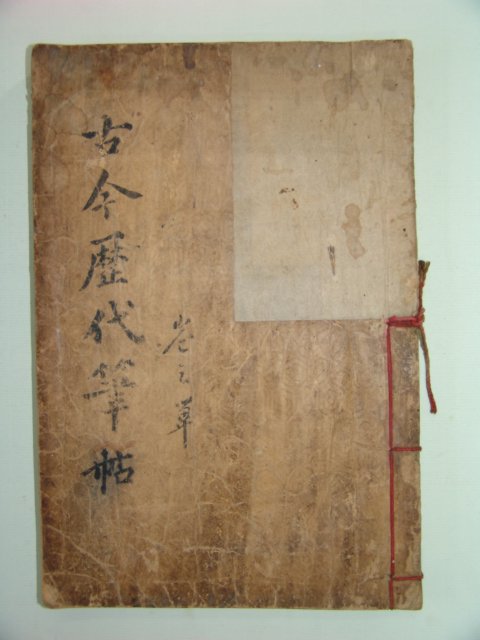 古今歷代筆帖
卷之單